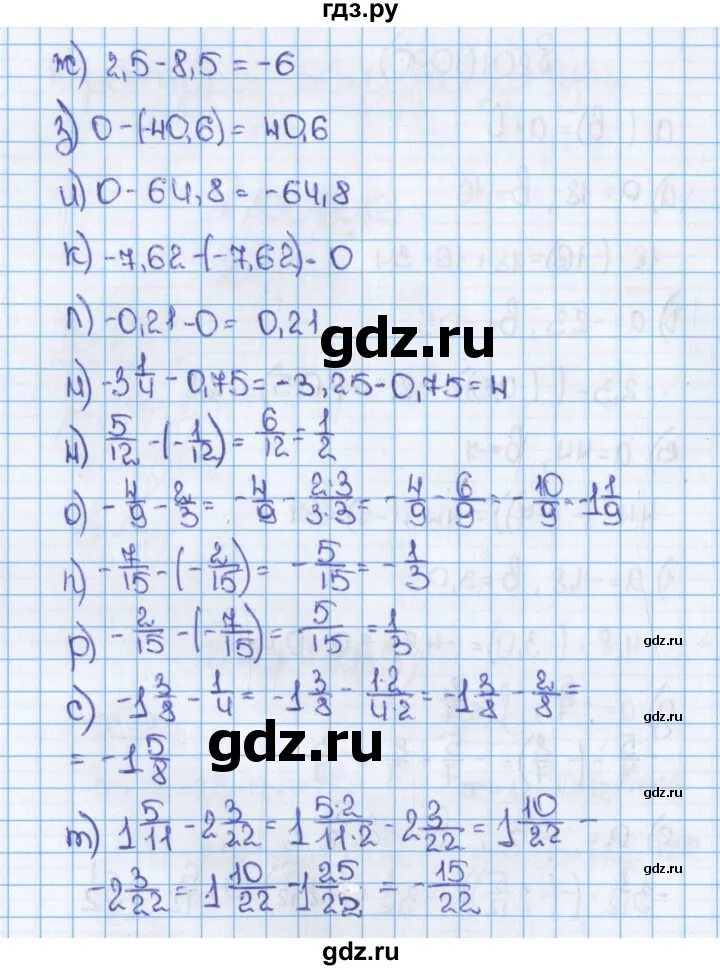 гдз.ру
ж) 2,5 - 8,5 = -6
з) 0 - (-40,6) = 40,6
и) 0 - 64,8 = -64,8
к) -7,62 - (-7,62) = 0
л) -0,21 - 0 = 0,21
gdz.ru
м) -3 1/4 - 0,75 = -3,25 - 0,75 = 4
н) 5/12 - (-1/12) = 6/12 = 1/2
о) -4/9 - 2/3 = -4/9 - 2·3/3·3 = -4/9 - 6/9 = -10/9 = -1 1/9
п) -7/15 - (-2/15) = -5/15 = -1/3
р) -2/15 - (-7/15) = 5/15 = 1/3
gdz.ru
с) -1 3/8 - 1/4 = -1 3/8 - 1·2/4·2 = -1 3/8 - 2/8 =
gdz.ru
= -1 5/8
gdz.ru
т) 1 5/11 - 2 3/22 = 1 5·2/11·2 - 2 3/22 = 1 10/22 -
gdz.ru
- 2 3/22 = 1 10/22 - 1 25/22 = -15/22
gdz.ru